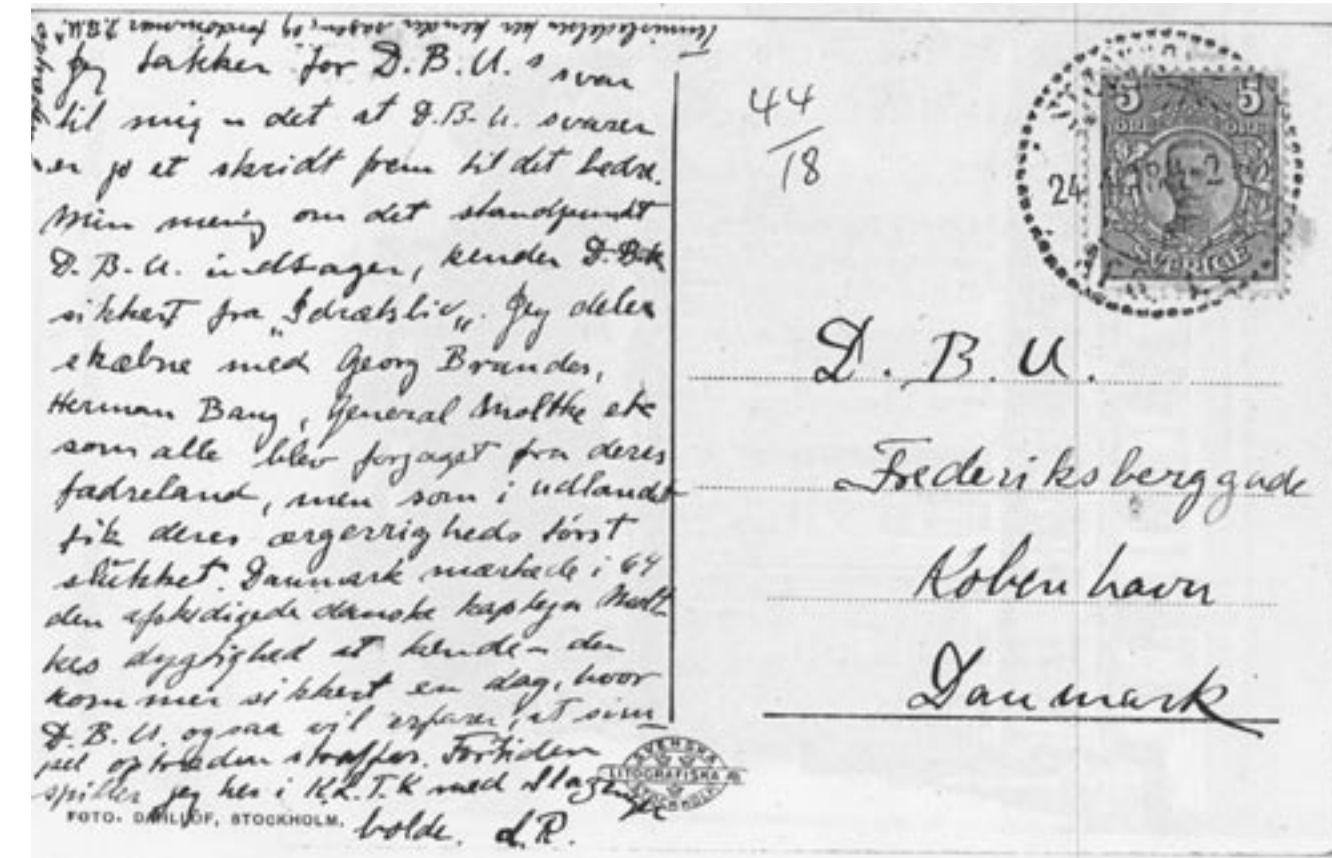 Jeg takker for D.B.U.s svar
til mig – det at D.B.U. svarer
er jo et skridt frem til det bedre.
Min menig om det standpunkt
D.B.U. indtager, kender D.B.U.
sikkert fra "Idrætsliv". Jeg deler
skæbne med Georg Brandes,
Herman Bang, General Moltke etc
som alle blev forjaget fra deres
fædreland, men som i udlandet
fik deres ærgerrigheds törst
slukket. Danmark mærkede i 64
den afskedigede danske kaptejn Molt
kes dygtighed at kende – der
kommer sikkert en dag, hvor
D.B.U. ogsaa vil erfare, at sim-
pel optræden straffer. Fortiden
spiller jeg her i K.L.T.K med Slazenger
bolde. L.R.
FOTO. DAHLLÖF, STOCKHOLM.
SVENSKA
LITOGRAFISKA AB
STOCKHOLM
44
18
5 5
ÖRE ÖRE
SVERIGE
24
D. B. U.
Frederiksberggade
Köbenhavn
Danmark